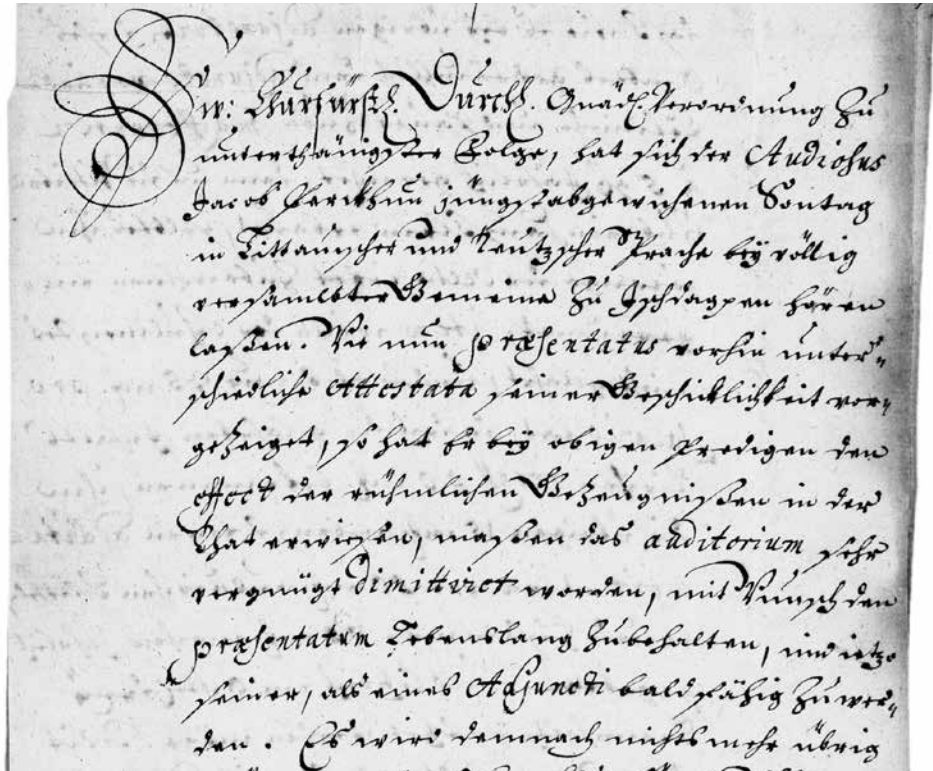 Ew: Churfürstl. Durchl. Gnäd. Verordnung zu
unterthänigster Folge, hat sich der Studiosus
Jacob Perckhun jüngstabgewichenen Sontag
in Littauscher und Teutzscher Sprache bey völlig
versamleter Gemeine zu Ischdagpen hären
laßen. Wie nun præsentatus vorhin unter-
schiedliche Attestata seiner Geschicklichkeit vor-
gezeiget, so hat Er bey obigen Predigen den
effect der rühmlichen Gezeugnißen in der
That erwiesen, maßen das auditorium sehr
vergnügt dimittiret worden, mit Wunsch den
præsentatum Lebenslang zubehalten, und ietzo
seiner, als eines Adjuncti bald fähig zu wer-
den. Es wird demnach nichts mehr übrig